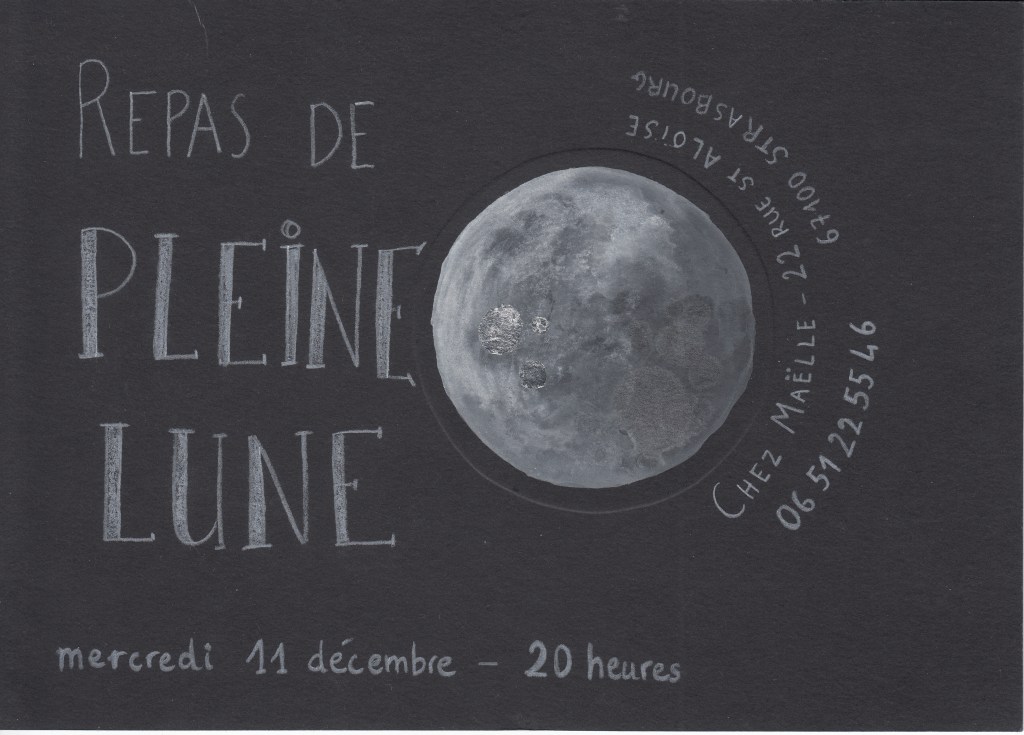 REPAS DE
PLEiNE
LUNE
CHEZ MAËLLE - 22 RUE ST ALOÏSE
67100 STRASBOURG
06 51 22 55 46
mercredi 11 décembre - 20 heures